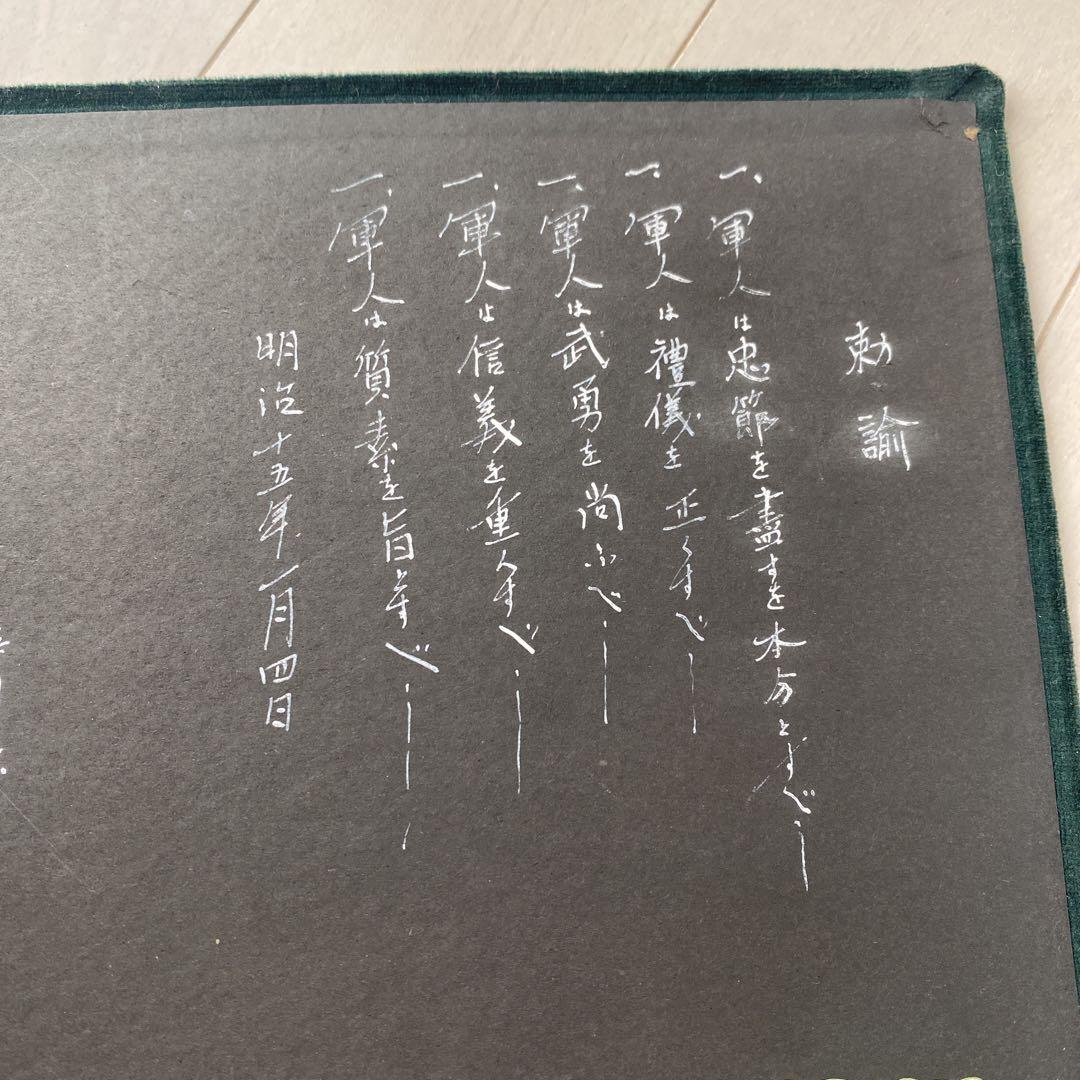 勅諭
一、軍人は忠節を盡すを本分とすべし
一、軍人は禮儀を正くすべし
一、軍人は武勇を尚ふべし
一、軍人は信義を重んすべし
一、軍人は質素を旨とすべし
明治十五年一月四日